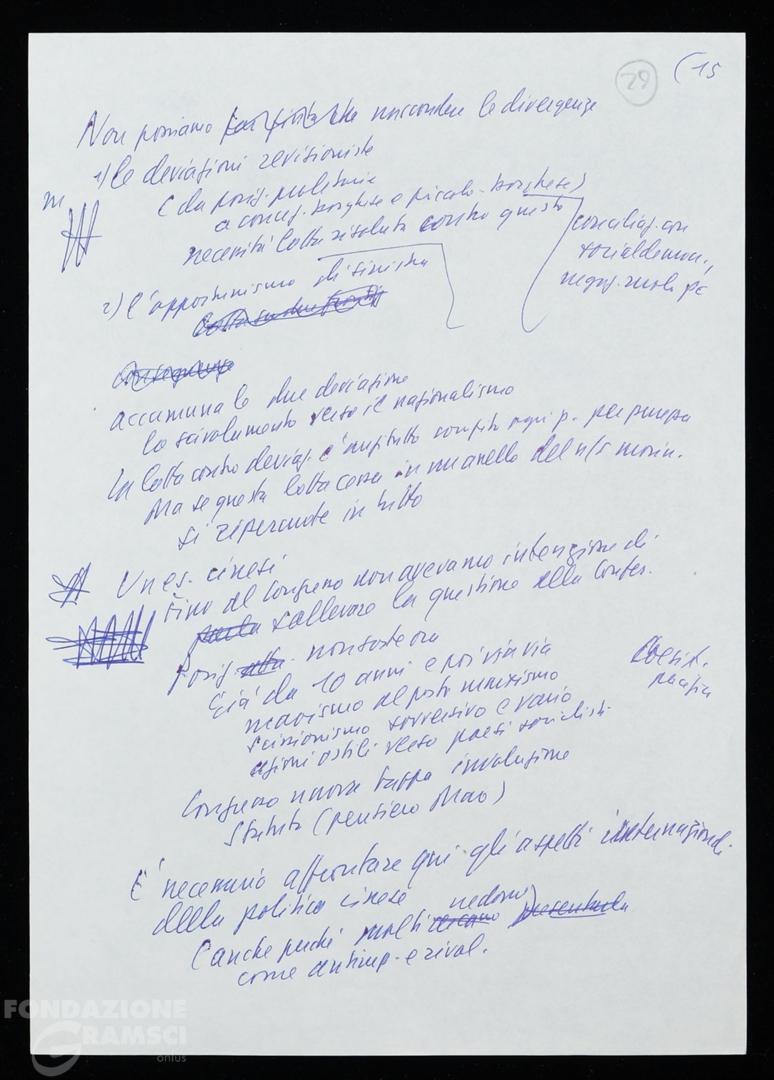 29
(15
Non possiamo nascondere le divergenze
1) le deviazioni revisioniste
(da posiz. proletarie
a concez. borghese e piccolo-borghese)
necessità lotta risoluta contro questo
conciliaz. con
socialdemocr.,
negaz. ruolo pc
2) l'opportunismo di sinistra
accomuna le due deviazione
lo scivolamento verso il nazionalismo
La lotta contro deviaz. è anzitutto compito ogni p. per purezza
Ma se questa lotta cessa in un anello del n/s movim.
si ripercuote in tutto
Un es. cinesi
Fino al Congresso non avevamo intenzione di
sollevare la questione alla Confer.
Posiz. non soste ora
Già da 10 anni e poi via via
maoismo al posto marxismo
scissionismo sovversivo e vario
azioni ostili verso paesi socialisti
Coesist.
pacifica
Congresso nuova tappa involuzione
Statuto (pensiero Mao)
E' necessario affrontare qui gli aspetti internazionali
della politica cinese
(anche perché molti vedono)
come antimp. e rivol.
FONDAZIONE
GRAMSCI
onlus